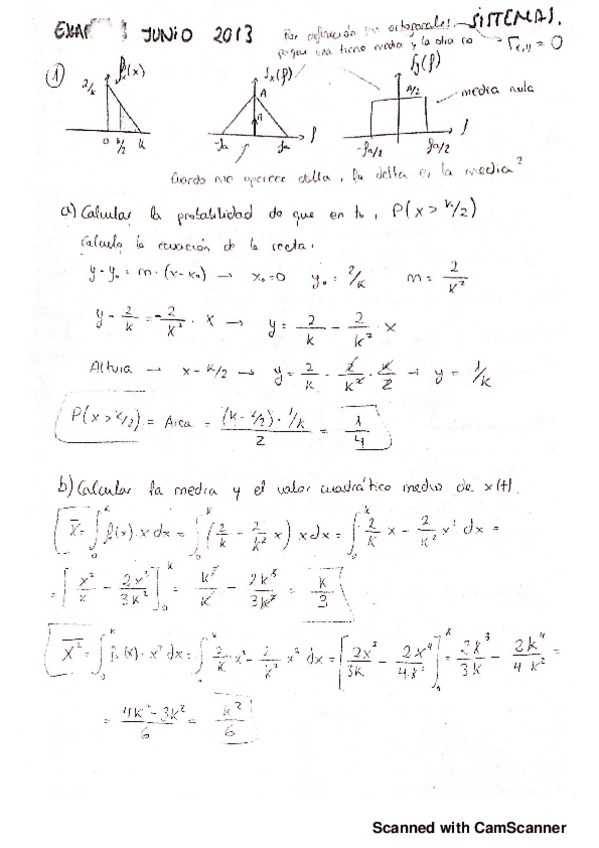 EXAM JUNIO 2013
Por definición son ortogonales SISTEMAS.
porque una tiene media y la otra no r_{x,y} = 0
① 2/k f_x(x) S_x(f) A S_y(f) A/2 media nula
0 k/2 k -fa fa f -fa/2 fa/2 f
Cuando me aparece delta, la delta es la media²
a) Calcular la probabilidad de que en t₀, P(x > k/2)
Calculo la ecuación de la recta.
y - y₀ = m · (x - x₀) → x₀ = 0 y₀ = 2/k m = 2/k²
y - 2/k = -2/k² · x → y = 2/k - 2/k² · x
Altura → x - k/2 → y = 2/k - 2/k² · k/2 → y = 1/k
P(x > k/2) = Área = (k - k/2) · 1/k / 2 = 1/4
b) Calcular la media y el valor cuadrático medio de x(t).
x̄ = ∫₀ᵏ f(x) · x dx = ∫₀ᵏ (2/k - 2/k² x) x dx = ∫₀ᵏ 2/k x - 2/k² x² dx =
= [x²/k - 2x³/3k²]₀ᵏ = k²/k - 2k³/3k² = k/3
x̄² = ∫₀ᵏ f(x) · x² dx = ∫₀ᵏ 2/k x² - 2/k² x³ dx = [2x³/3k - 2x⁴/4k²]₀ᵏ = 2k³/3k - 2k⁴/4k² =
= 4k² - 3k² / 6 = k²/6
Scanned with CamScanner